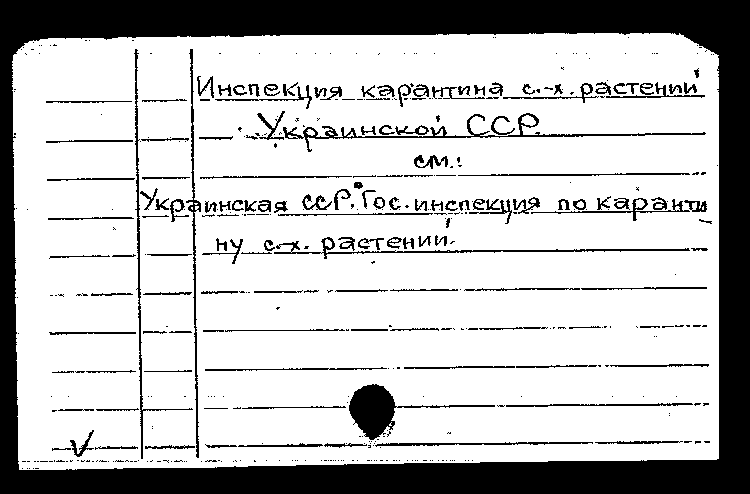 Инспекция карантина с.-х. растений
Украинской ССР.
см.:
Украинская ССР. Гос. инспекция по каранти
ну с.-х. растений.